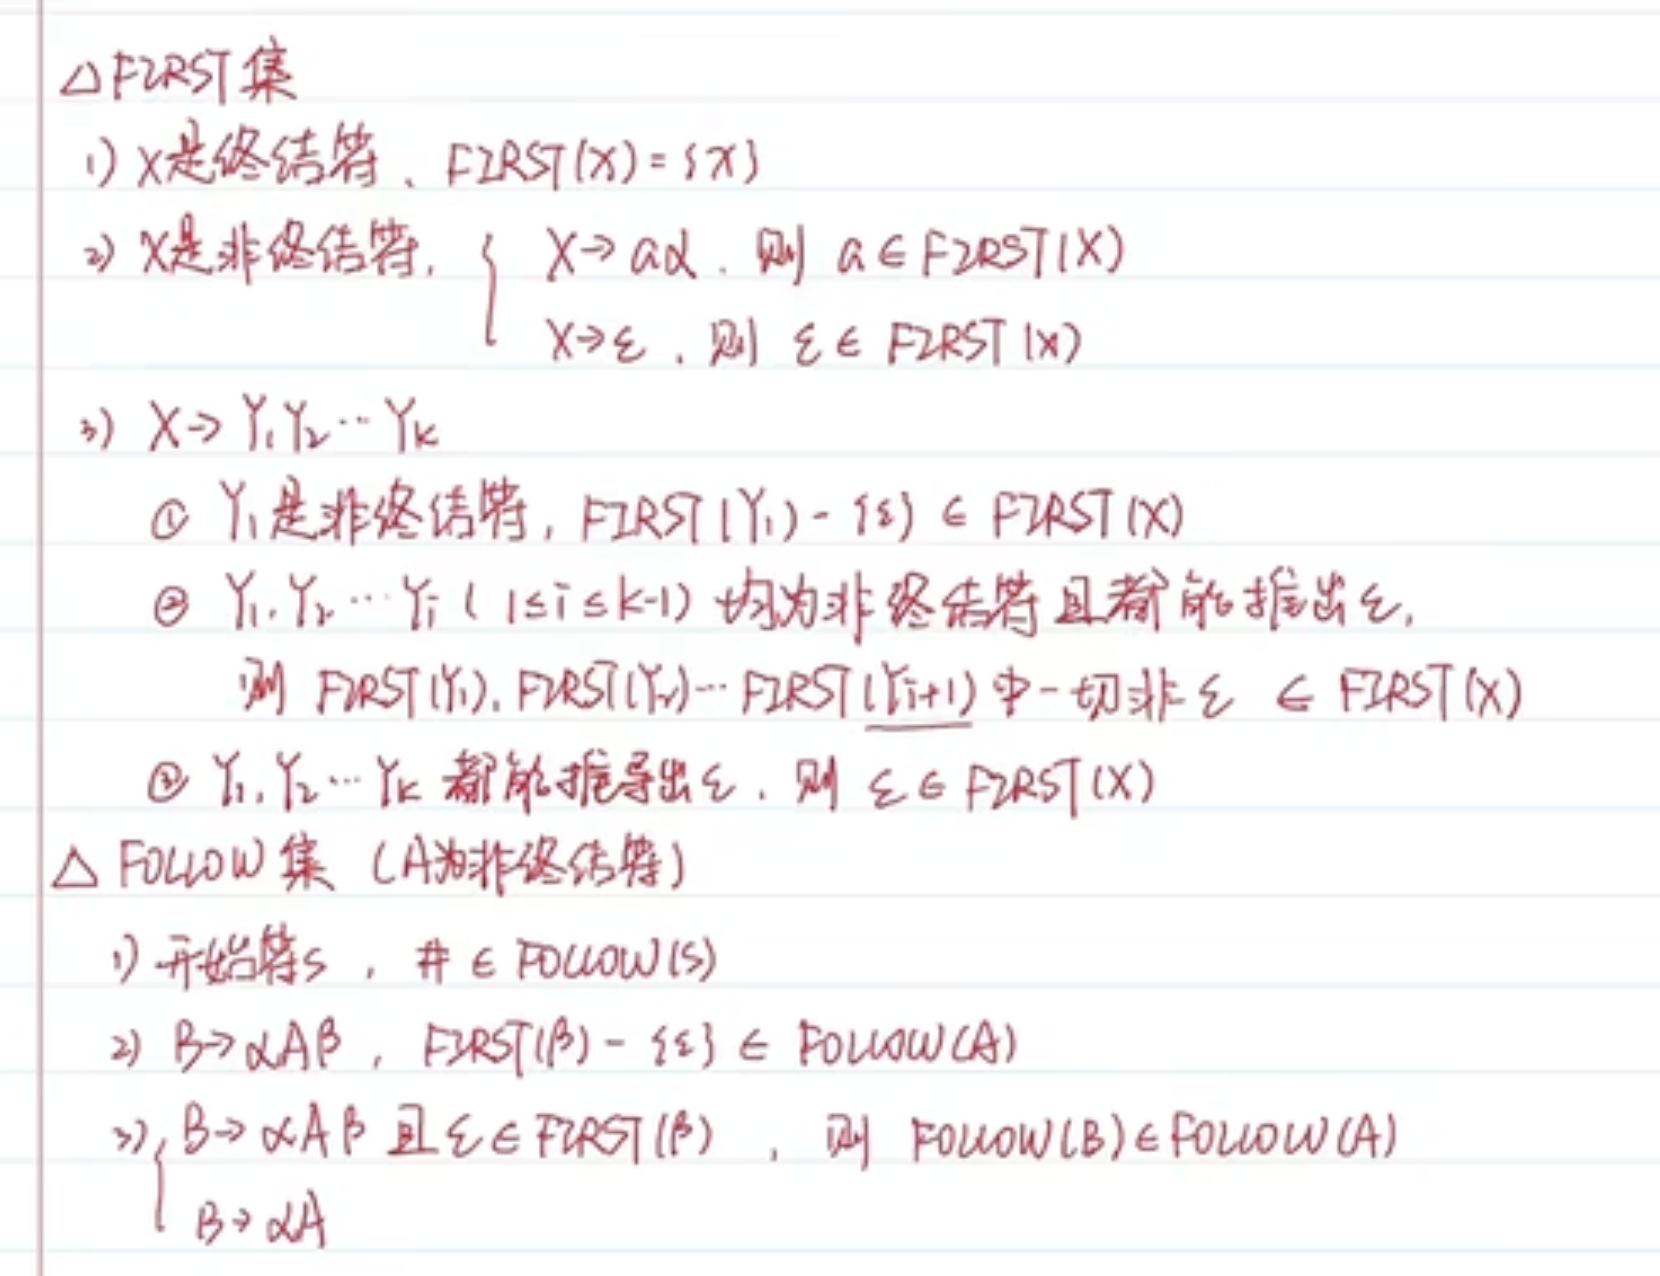 △FIRST集
1) X是终结符、FIRST(X)={X}
2) X是非终结符, { X→aα . 则 a∈FIRST(X)
X→ε . 则 ε∈FIRST(X)
3) X→Y₁Y₂…Yₖ
① Y₁是非终结符, FIRST(Y₁)-{ε}∈FIRST(X)
② Y₁.Y₂…Yᵢ(1≤i≤k-1) 均为非终结符且都能推出ε,
则 FIRST(Y₁).FIRST(Y₂)…FIRST(Yi+1)中一切非ε ∈ FIRST(X)
③ Y₁.Y₂…Yₖ 都能推导出ε. 则 ε∈FIRST(X)
△ FOLLOW集 (A为非终结符)
1) 开始符S , # ∈ FOLLOW(S)
2) B→αAβ , FIRST(β)-{ε}∈ FOLLOW(A)
3) { B→αAβ 且ε∈FIRST(β) , 则 FOLLOW(B)∈FOLLOW(A)
B→αA